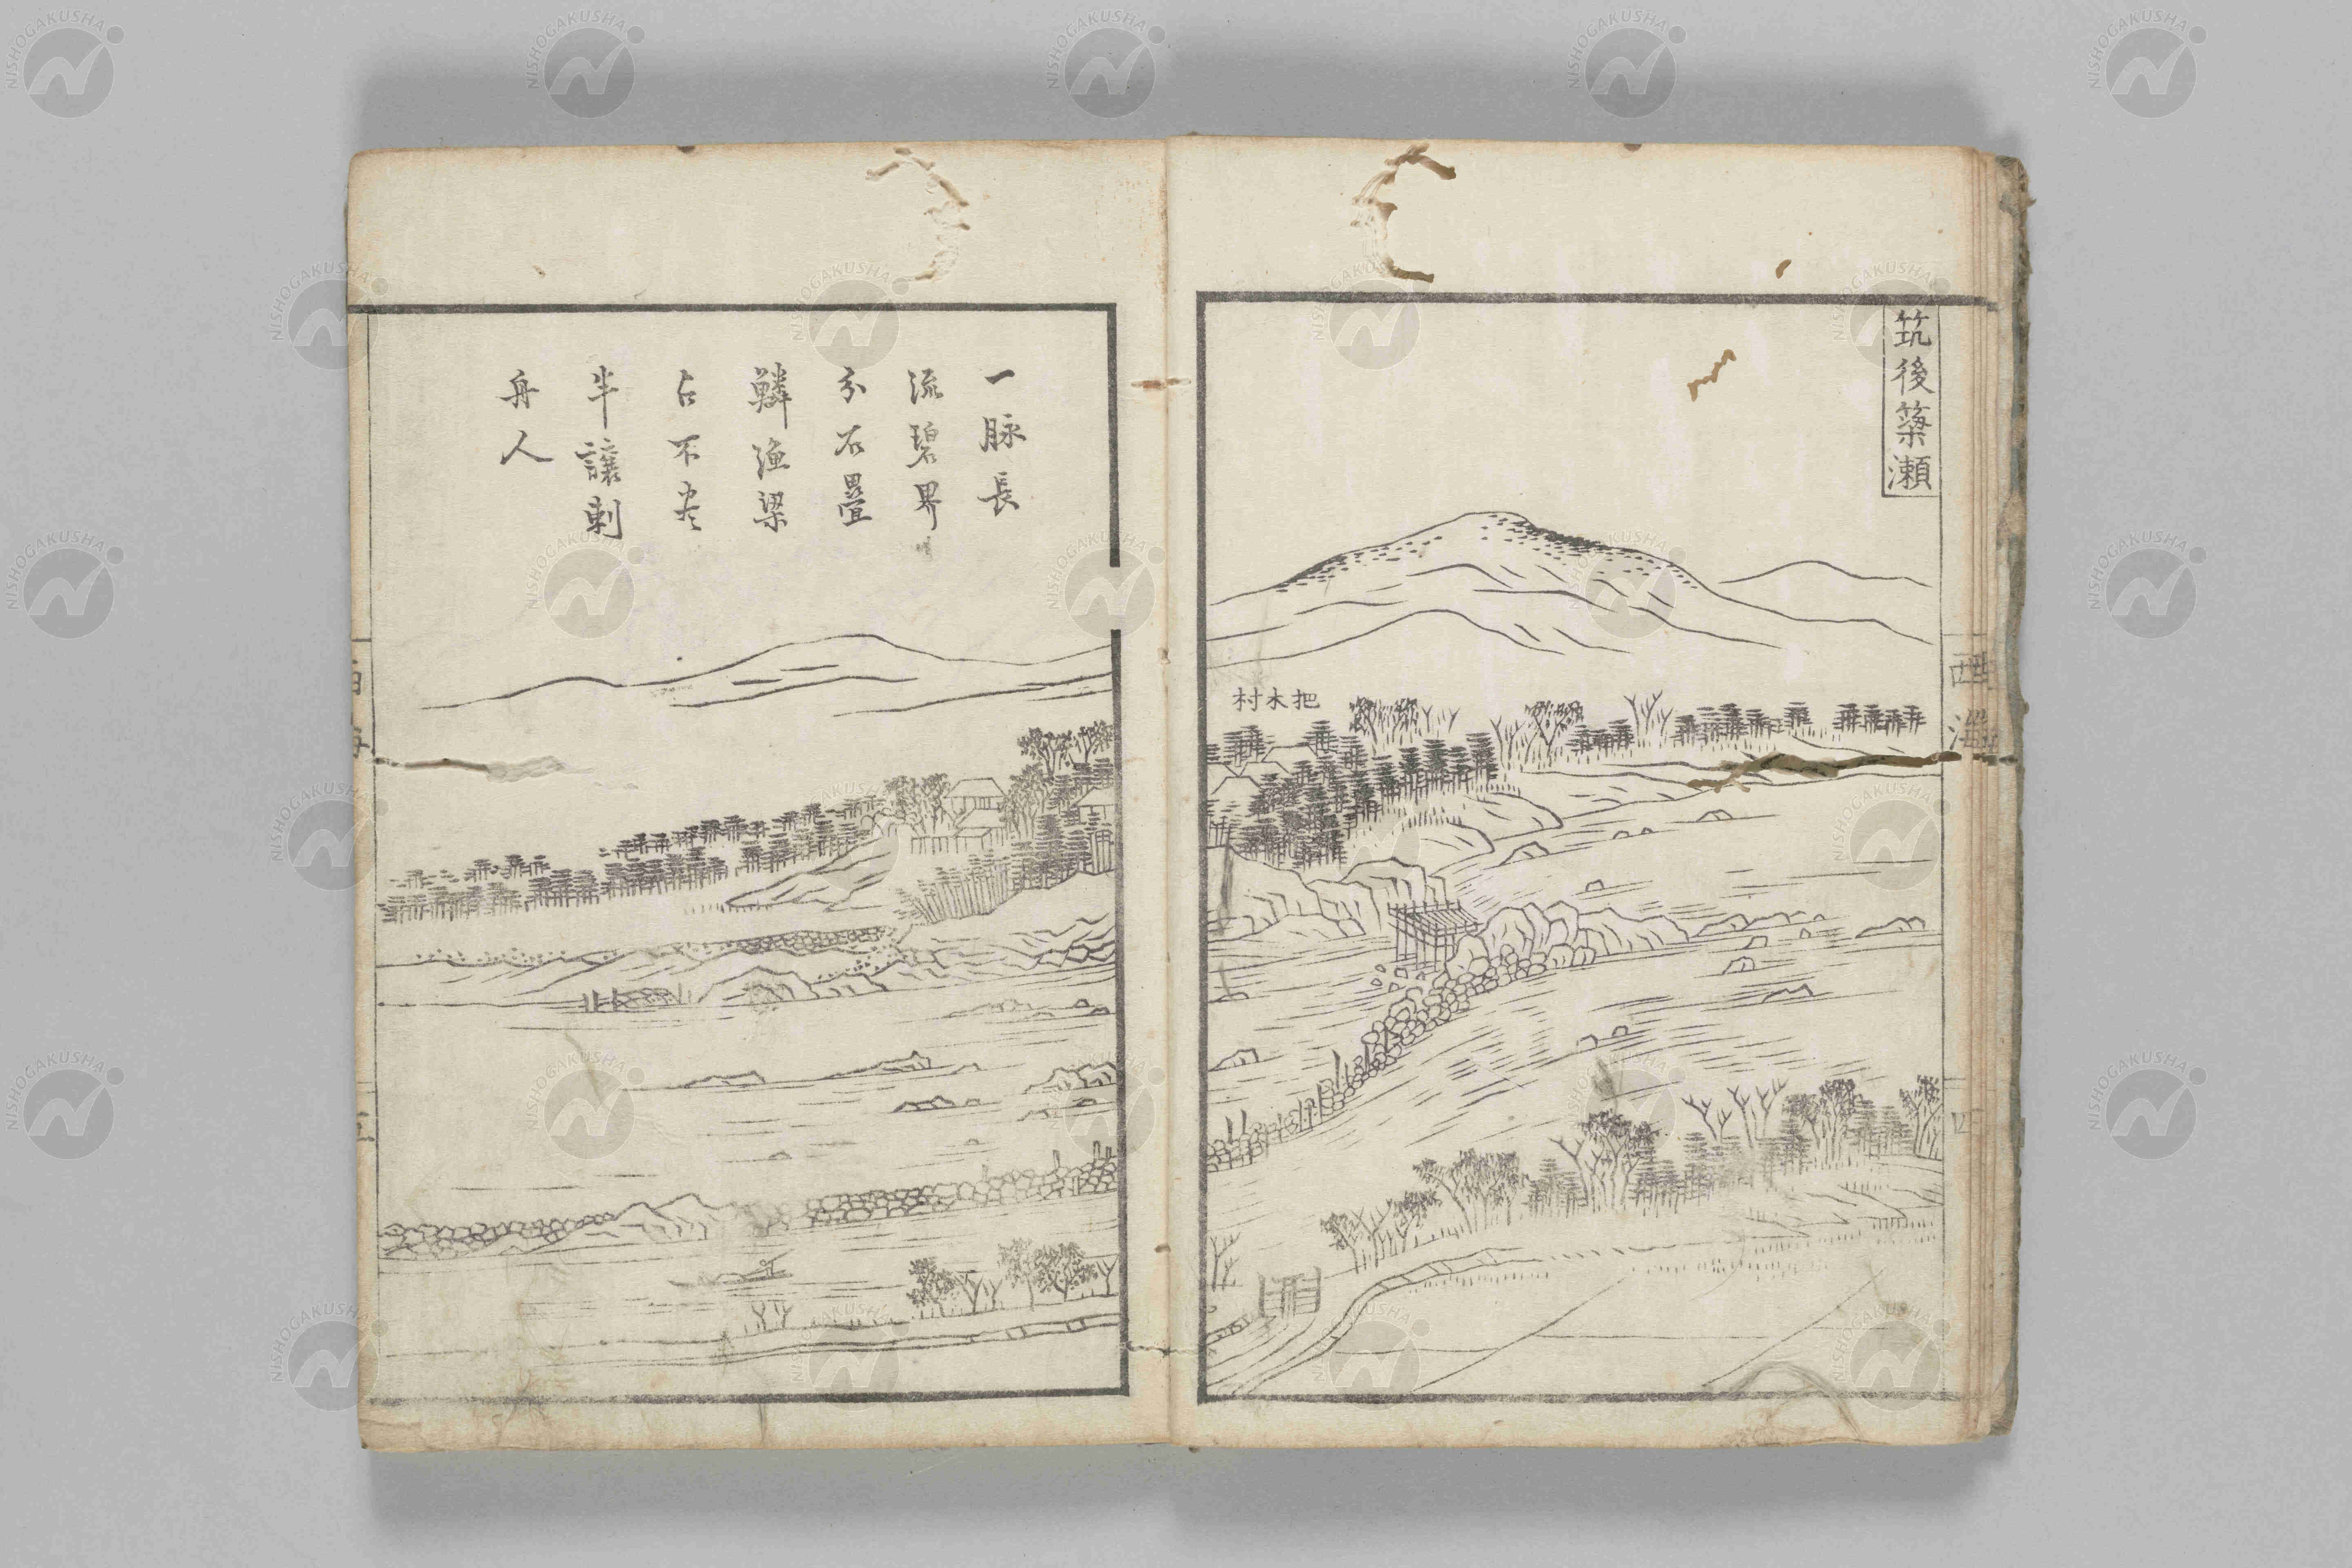 筑後簗瀬
把木村
西海
四
一脉長
流碧界
分石畳
鱗漁梁
占不尽
半讓刺
舟人
NISHOGAKUSHA